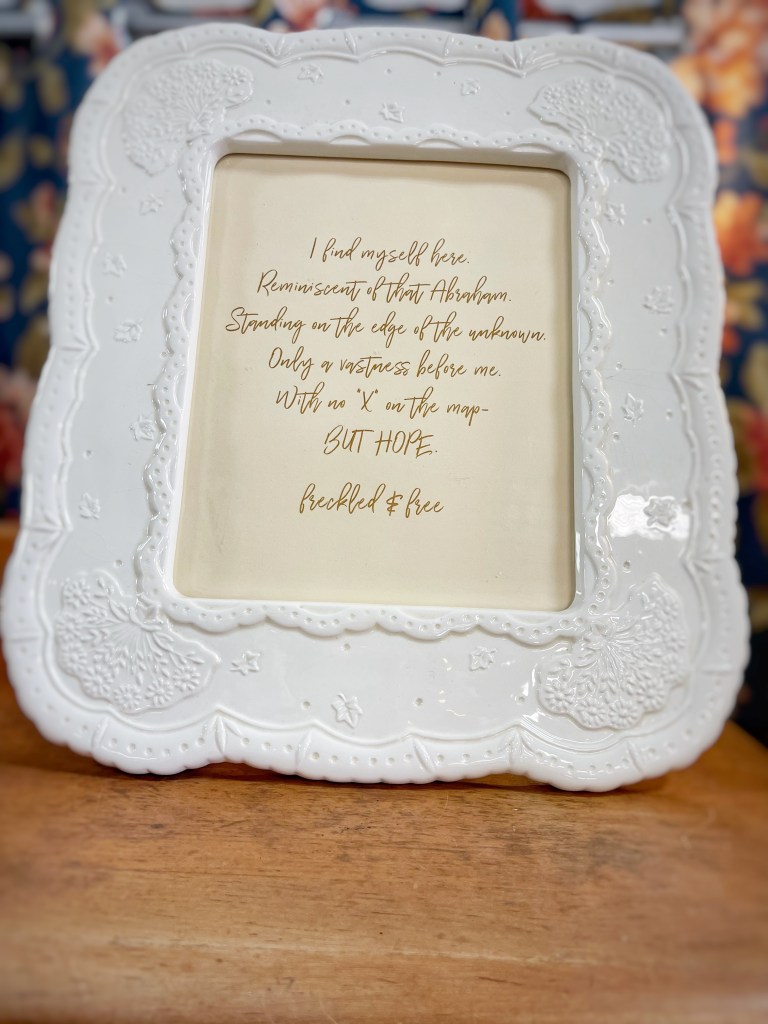 I find myself here.
Reminiscent of that Abraham.
Standing on the edge of the unknown.
Only a vastness before me.
With no "X" on the map-
BUT HOPE.
freckled & free